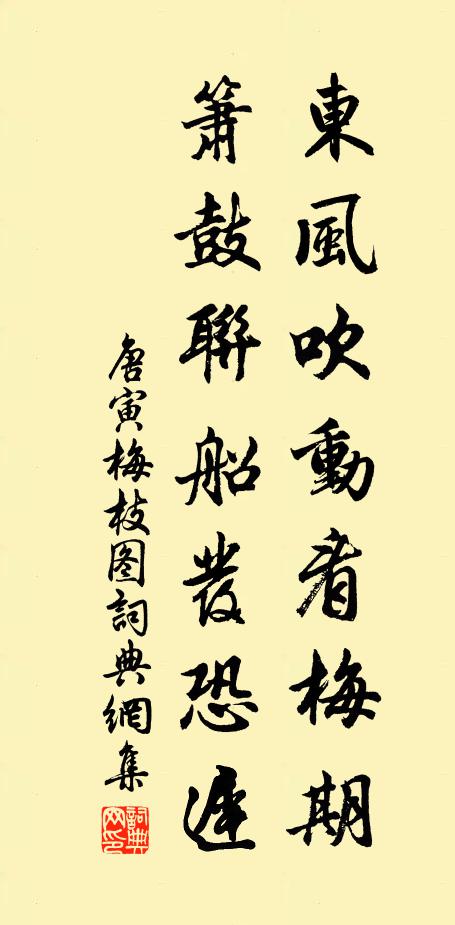 東風吹動看梅期
簫鼓聯船發恐遲
唐寅梅枝图詞典網集
詞典
网印